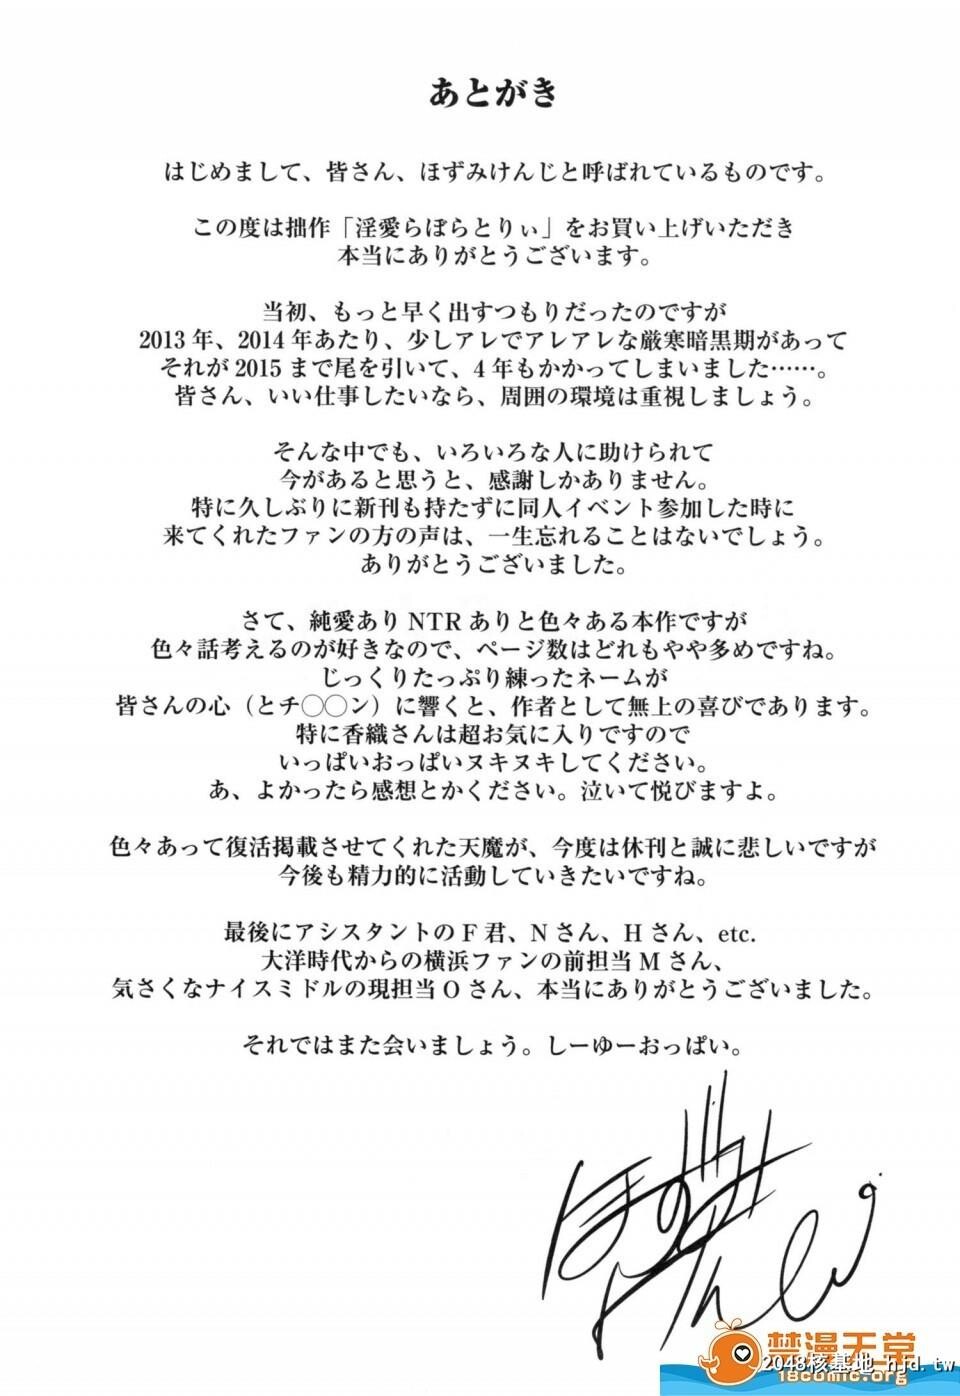 あとがき
はじめまして、皆さん、ほずみけんじと呼ばれているものです。
この度は拙作「淫愛らぼらとりぃ」をお買い上げいただき
本当にありがとうございます。
当初、もっと早く出すつもりだったのですが
2013年、2014年あたり、少しアレでアレアレな厳寒暗黒期があって
それが2015まで尾を引いて、4年もかかってしまいました……。
皆さん、いい仕事したいなら、周囲の環境は重視しましょう。
そんな中でも、いろいろな人に助けられて
今があると思うと、感謝しかありません。
特に久しぶりに新刊も持たずに同人イベント参加した時に
来てくれたファンの方の声は、一生忘れることはないでしょう。
ありがとうございました。
さて、純愛ありNTRありと色々ある本作ですが
色々話考えるのが好きなので、ページ数はどれもやや多めですね。
じっくりたっぷり練ったネームが
皆さんの心（とチ◯◯ン）に響くと、作者として無上の喜びであります。
特に香織さんは超お気に入りですので
いっぱいおっぱいヌキヌキしてください。
あ、よかったら感想とかください。泣いて悦びますよ。
色々あって復活掲載させてくれた天魔が、今度は休刊と誠に悲しいですが
今後も精力的に活動していきたいですね。
最後にアシスタントのF君、Nさん、Hさん、etc.
大洋時代からの横浜ファンの前担当Mさん、
気さくなナイスミドルの現担当Oさん、本当にありがとうございました。
それではまた会いましょう。しーゆーおっぱい。
ほずみけんじ
禁漫天堂
2048核基地_hjd.tw
18comic.org